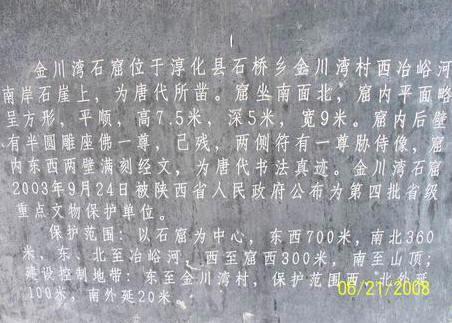 金川湾石窟位于淳化县石桥乡金川湾村西冶峪河
南岸石崖上，为唐代所凿。窟坐南面北，窟内平面略
呈方形，平顺，高7.5米，深5米，宽9米。窟内后壁
有半圆雕座佛一尊，己残，两侧符有一尊胁侍像，窟
内东西两壁满刻经文，为唐代书法真迹。金川湾石窟
2003年9月24日被陕西省人民政府公布为第四批省级
重点文物保护单位。
保护范围：以石窟为中心，东西700米，南北360
米，东、北至冶峪河，西至窟西300米，南至山顶；
建设控制地带：东至金川湾村，保护范围西、北外延
100米，南外延20米。
06/21/2008